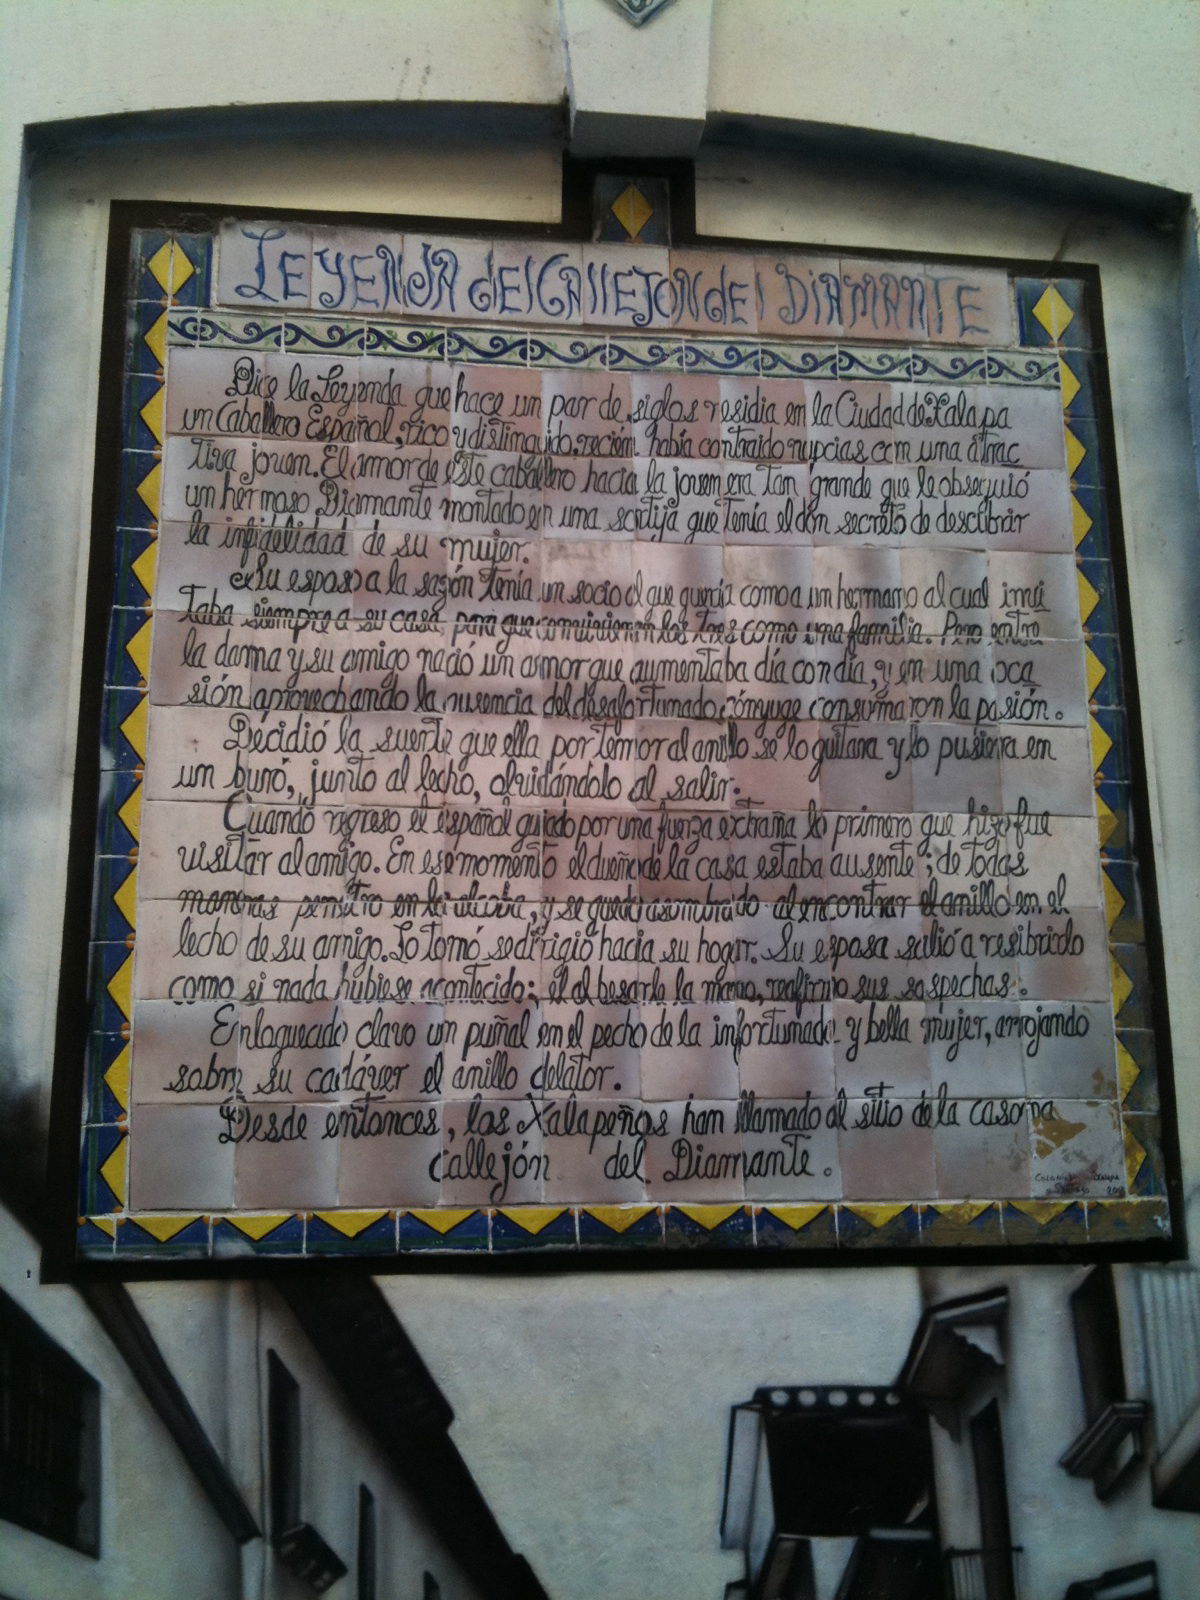 LEYENDA del CAllEJON del DIAMANTE
Dice la Leyenda que hace un par de siglos residia en la Ciudad de Xalapa
un Caballero Español, rico y distinguido, recién había contraido nupcias con una atrac
tiva joven. El amor de este caballero hacia la joven era tan grande que le obsequió
un hermoso Diamante montado en una sortija que tenía el don secreto de descubrir
la infidelidad de su mujer.
Su esposo a la sazón tenía un socio al que quería como a un hermano al cual invi
taba siempre a su casa, para que convivieran los tres como una familia. Pero entre
la dama y su amigo nació un amor que aumentaba día con día, y en una oca
sión aprovechando la ausencia del desafortunado cónyuge consumaron la pasión.
Decidió la suerte que ella por temor al anillo se lo quitara y lo pusiera en
un buró, junto al lecho, olvidándolo al salir.
Cuando regreso el español guiado por una fuerza extraña lo primero que hizo fue
visitar al amigo. En ese momento el dueño de la casa estaba ausente; de todas
maneras penetro en la alcoba, y se quedo asombrado al encontrar el anillo en el
lecho de su amigo. Lo tomó se dirigió hacia su hogar. Su esposa salió a resibirlo
como si nada hubiese acontecido; él al besarle la mano, reafirmo sus sospechas.
Enloquecido clavo un puñal en el pecho de la infortunada y bella mujer, arrojando
sobre su cadáver el anillo delator.
Desde entonces, los Xalapeños han llamado al sitio de la casona
callejón del Diamante.